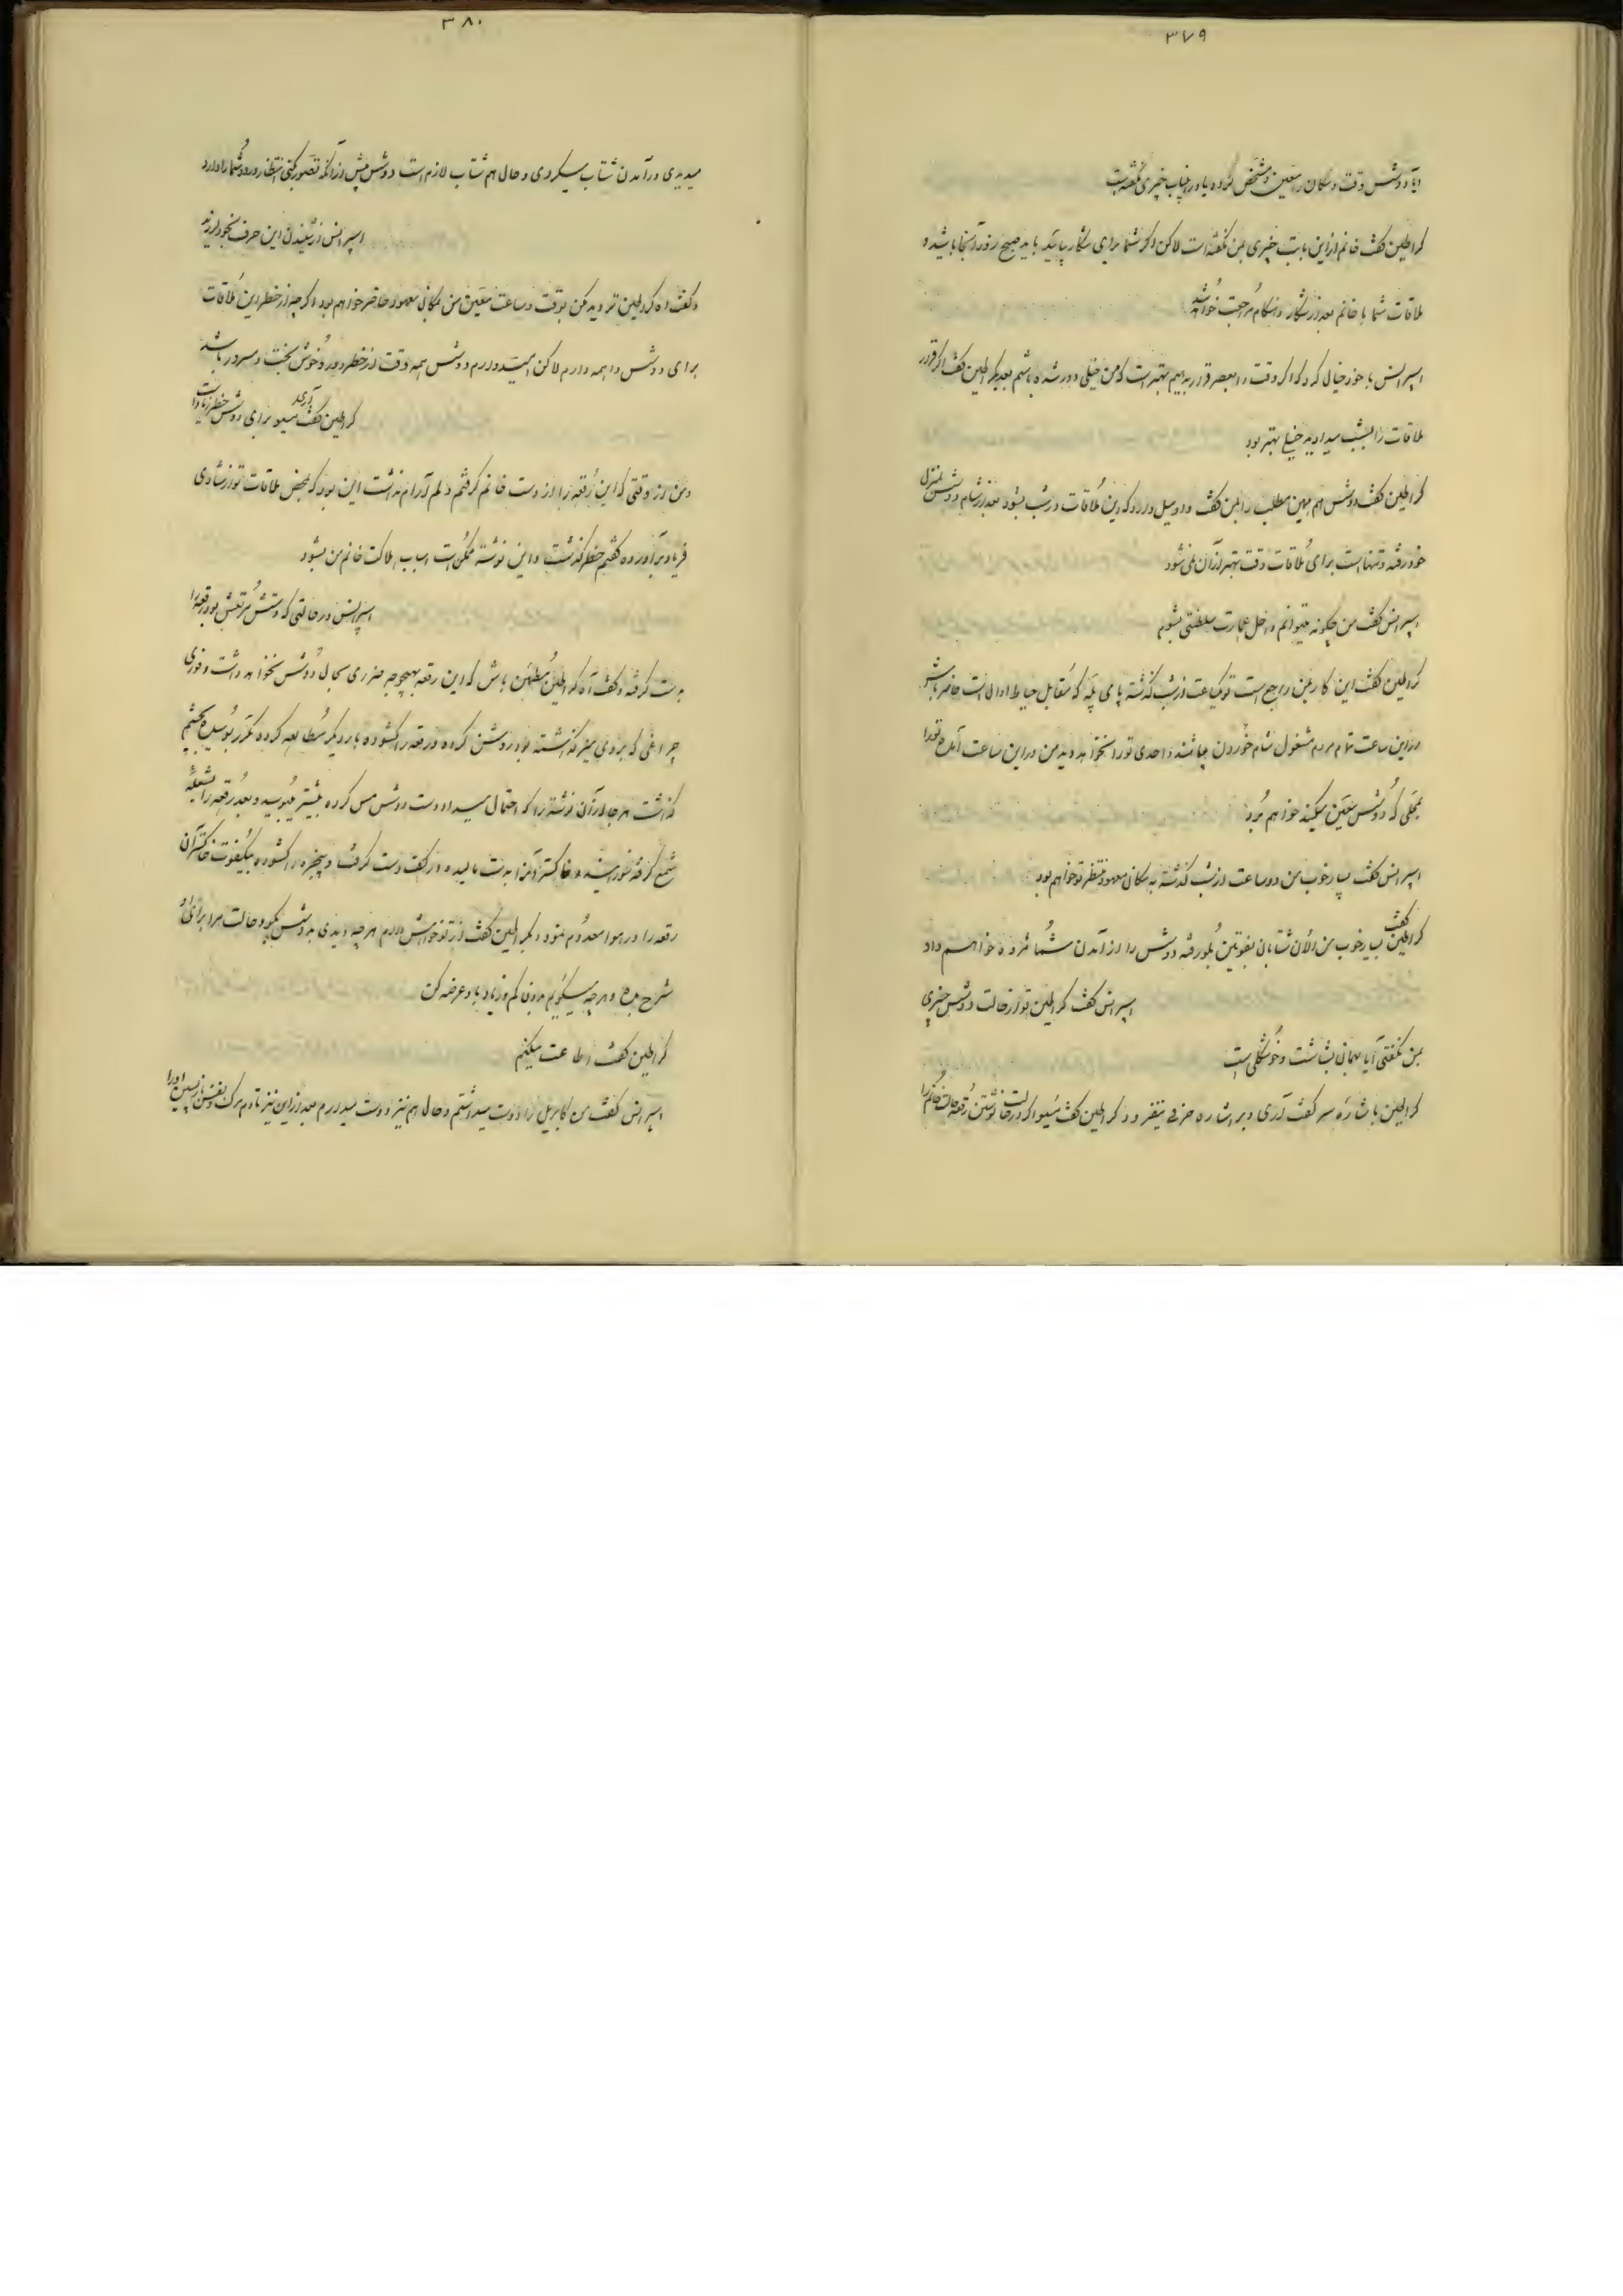 ۳۷۹
آیا دوشس وقت و مکان را معین و مشخص کرده یا در اینباب چیزی نگفته است
کراطین گفت خانم از این بابت چیزی بمن نگفته است لاکن اگر شما برای شکار بیائید باید صبح زود آنجا باشید و
ملاقات شما با خانم بعد از شکار و هنگام مراجعت خواهد شد
اسپرانس با خود خیال کرد که اگر وقت را بعصر قرار بدهیم بهتر است که من خیلی دور شده باشم بعد کراطین گفت اگر قرار
ملاقات را بشب میدادید خیلی بهتر بود
کراطین گفت دوشس هم همین مطلب را بمن گفت و او میل دارد که این ملاقات در شب بشود بعد از شام دوشس بمنزل
خود رفته و تنهاست برای ملاقات وقت بهتر از آن نمیشود
اسپرانس گفت من چگونه میتوانم داخل عمارت سلطنتی بشوم
کراطین گفت این کار بمن راجع است تو یکساعت از شب گذشته پای پله که مقابل حیاط اوالانست حاضر باش
در این ساعت تمام مردم مشغول شام خوردن میباشند و احدی تو را نخواهد دید من در این ساعت آمده تو را
بمحلی که دوشس معین میکند خواهم برد
اسپرانس گفت بسیار خوب من دو ساعت از شب گذشته به مکان معهود منتظر تو خواهم بود
کراطین گفت بسیار خوب من الآن شتابان بفونتن بلو رفته دوشس را از آمدن شما مژده خواهم داد
اسپرانس گفت کراطین تو از حالت دوشس چیزی
بمن نگفتی آیا بهمان بشاشت و خوشگلی است
کراطین با اشاره سر گفت آری و بر اشاره حرفی نیفزود کراطین گفت مسیو اگر در حالت نوشتن رقعه حالت خانم را
۳۸۰
میدیدی در آمدن شتاب میکردی و حال هم شتاب لازم است دوشس پیش از آنکه تصور بکنی انتظار ورود شما را دارد
اسپرانس از شنیدن این حرف بخود لرزید
و گفت آه کراطین تردید مکن بوقت و ساعت معین من بمکان معهود حاضر خواهم بود اگر چه از خطر این ملاقات
برای دوشس واهمه دارم لاکن امیدوارم دوشس همه وقت از خطر دور و خوش بخت و مسرور باشد
کراطین گفت آری مسیو برای دوشس خطر زیاد است
و من از وقتی که این رقعه را از دست خانم گرفتم دلم آرام نداشت این بود که بمحض ملاقات تو از شادی
فریاد برآورده گفتم خطر گذشت و این نوشته ممکن است اسباب هلاکت خانم من بشود
اسپرانس در حالتی که دستش مرتعش بود رقعه را
بدست گرفته و گفت آه کراطین مطمئن باش که این رقعه بهیچوجه ضرری بحال دوشس نخواهد داشت و فوری
چراغی که بروی میز گذاشته بود روشن کرده و رقعه را گشوده بار دیگر مطالعه کرده مکرر بوسیده بچشم
گذاشت هر جا از آن نوشته را که احتمال میداد دست دوشس مس کرده بیشتر میبوسید و بعد رقعه را بشعله
شمع گرفته سوزانید و خاکستر آنرا بدست مالیده در کف دست گرفت و پنجره را گشوده بیکفوت خاکستر آن
رقعه را در هوا معدوم نمود و بکراطین گفت از تو خواهش دارم هر چه دیدی به دوشس بگو و حالت مرا برای او
شرح بده و هر چه میگویم بدون کم و زیاد باو عرضه کن
کراطین گفت اطاعت میکنم
اسپرانس گفت من کابریل را دوست میداشتم و حال هم نیز دوست میدارم بعد از این نیز تا دم مرگ و نفس بازپسین او را